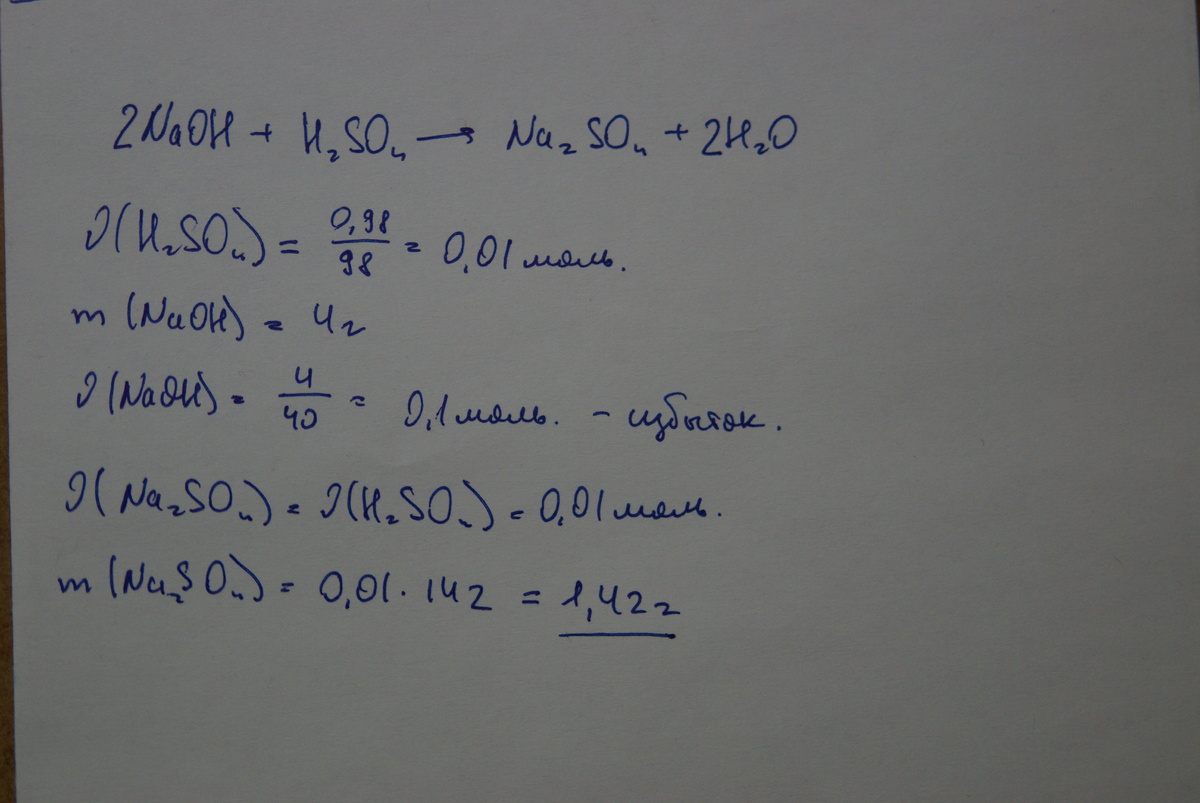 2NaOH + H₂SO₄ → Na₂SO₄ + 2H₂O
ν(H₂SO₄) = 0,98/98 = 0,01 моль.
m (NaOH) = 4г
ν(NaOH) = 4/40 = 0,1 моль. – избыток.
ν(Na₂SO₄) = ν(H₂SO₄) = 0,01 моль.
m (Na₂SO₄) = 0,01 · 142 = 1,42г